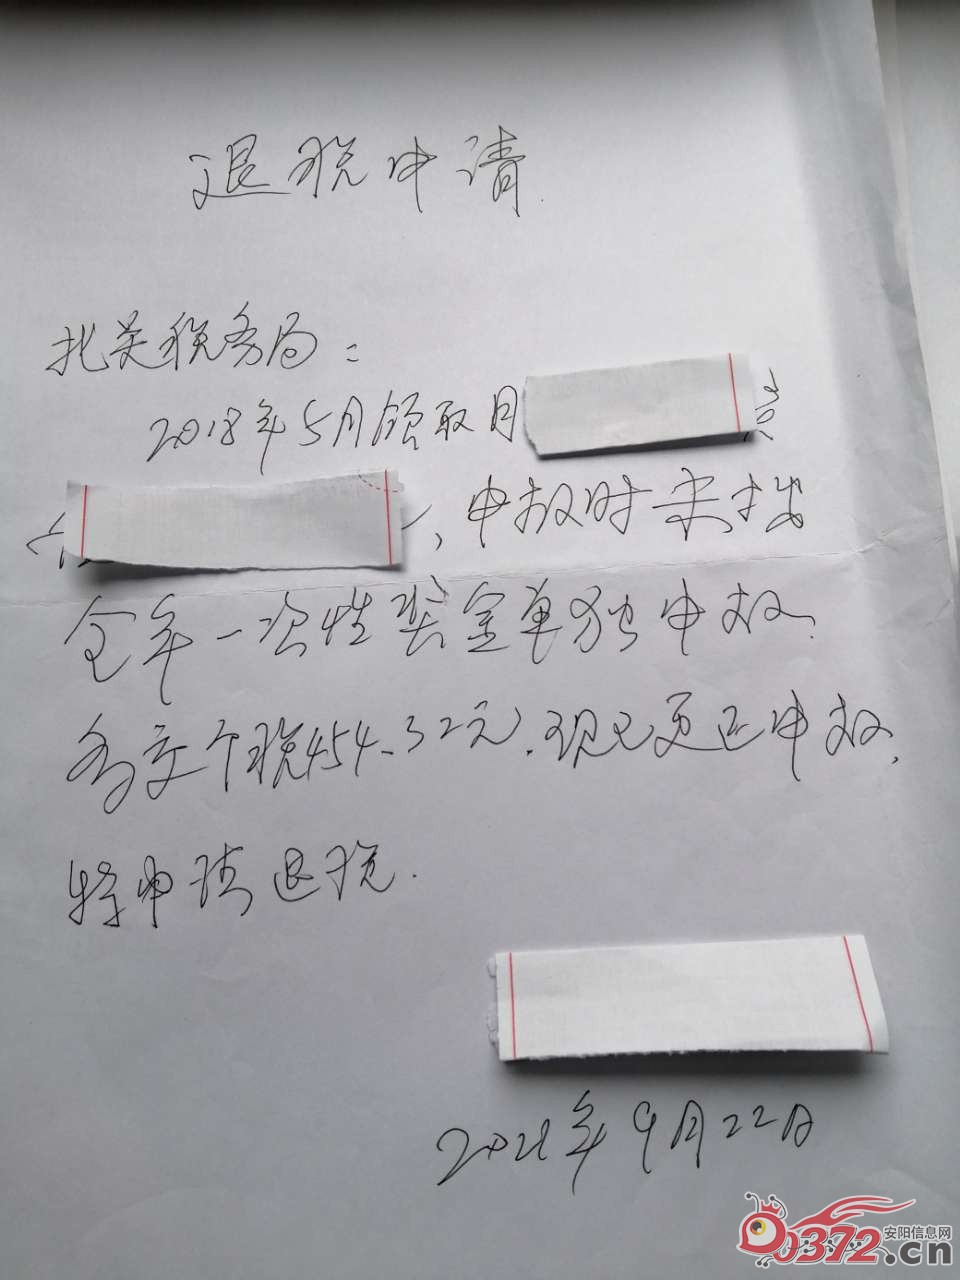 退税申请
北关税务局:
2018年5月领取月
，申报时未按
全年一次性奖金单独申报.
多交个税454.32元.现已更正申报,
特申请退税.
2021年9月22日
0372.cn
安阳信息网